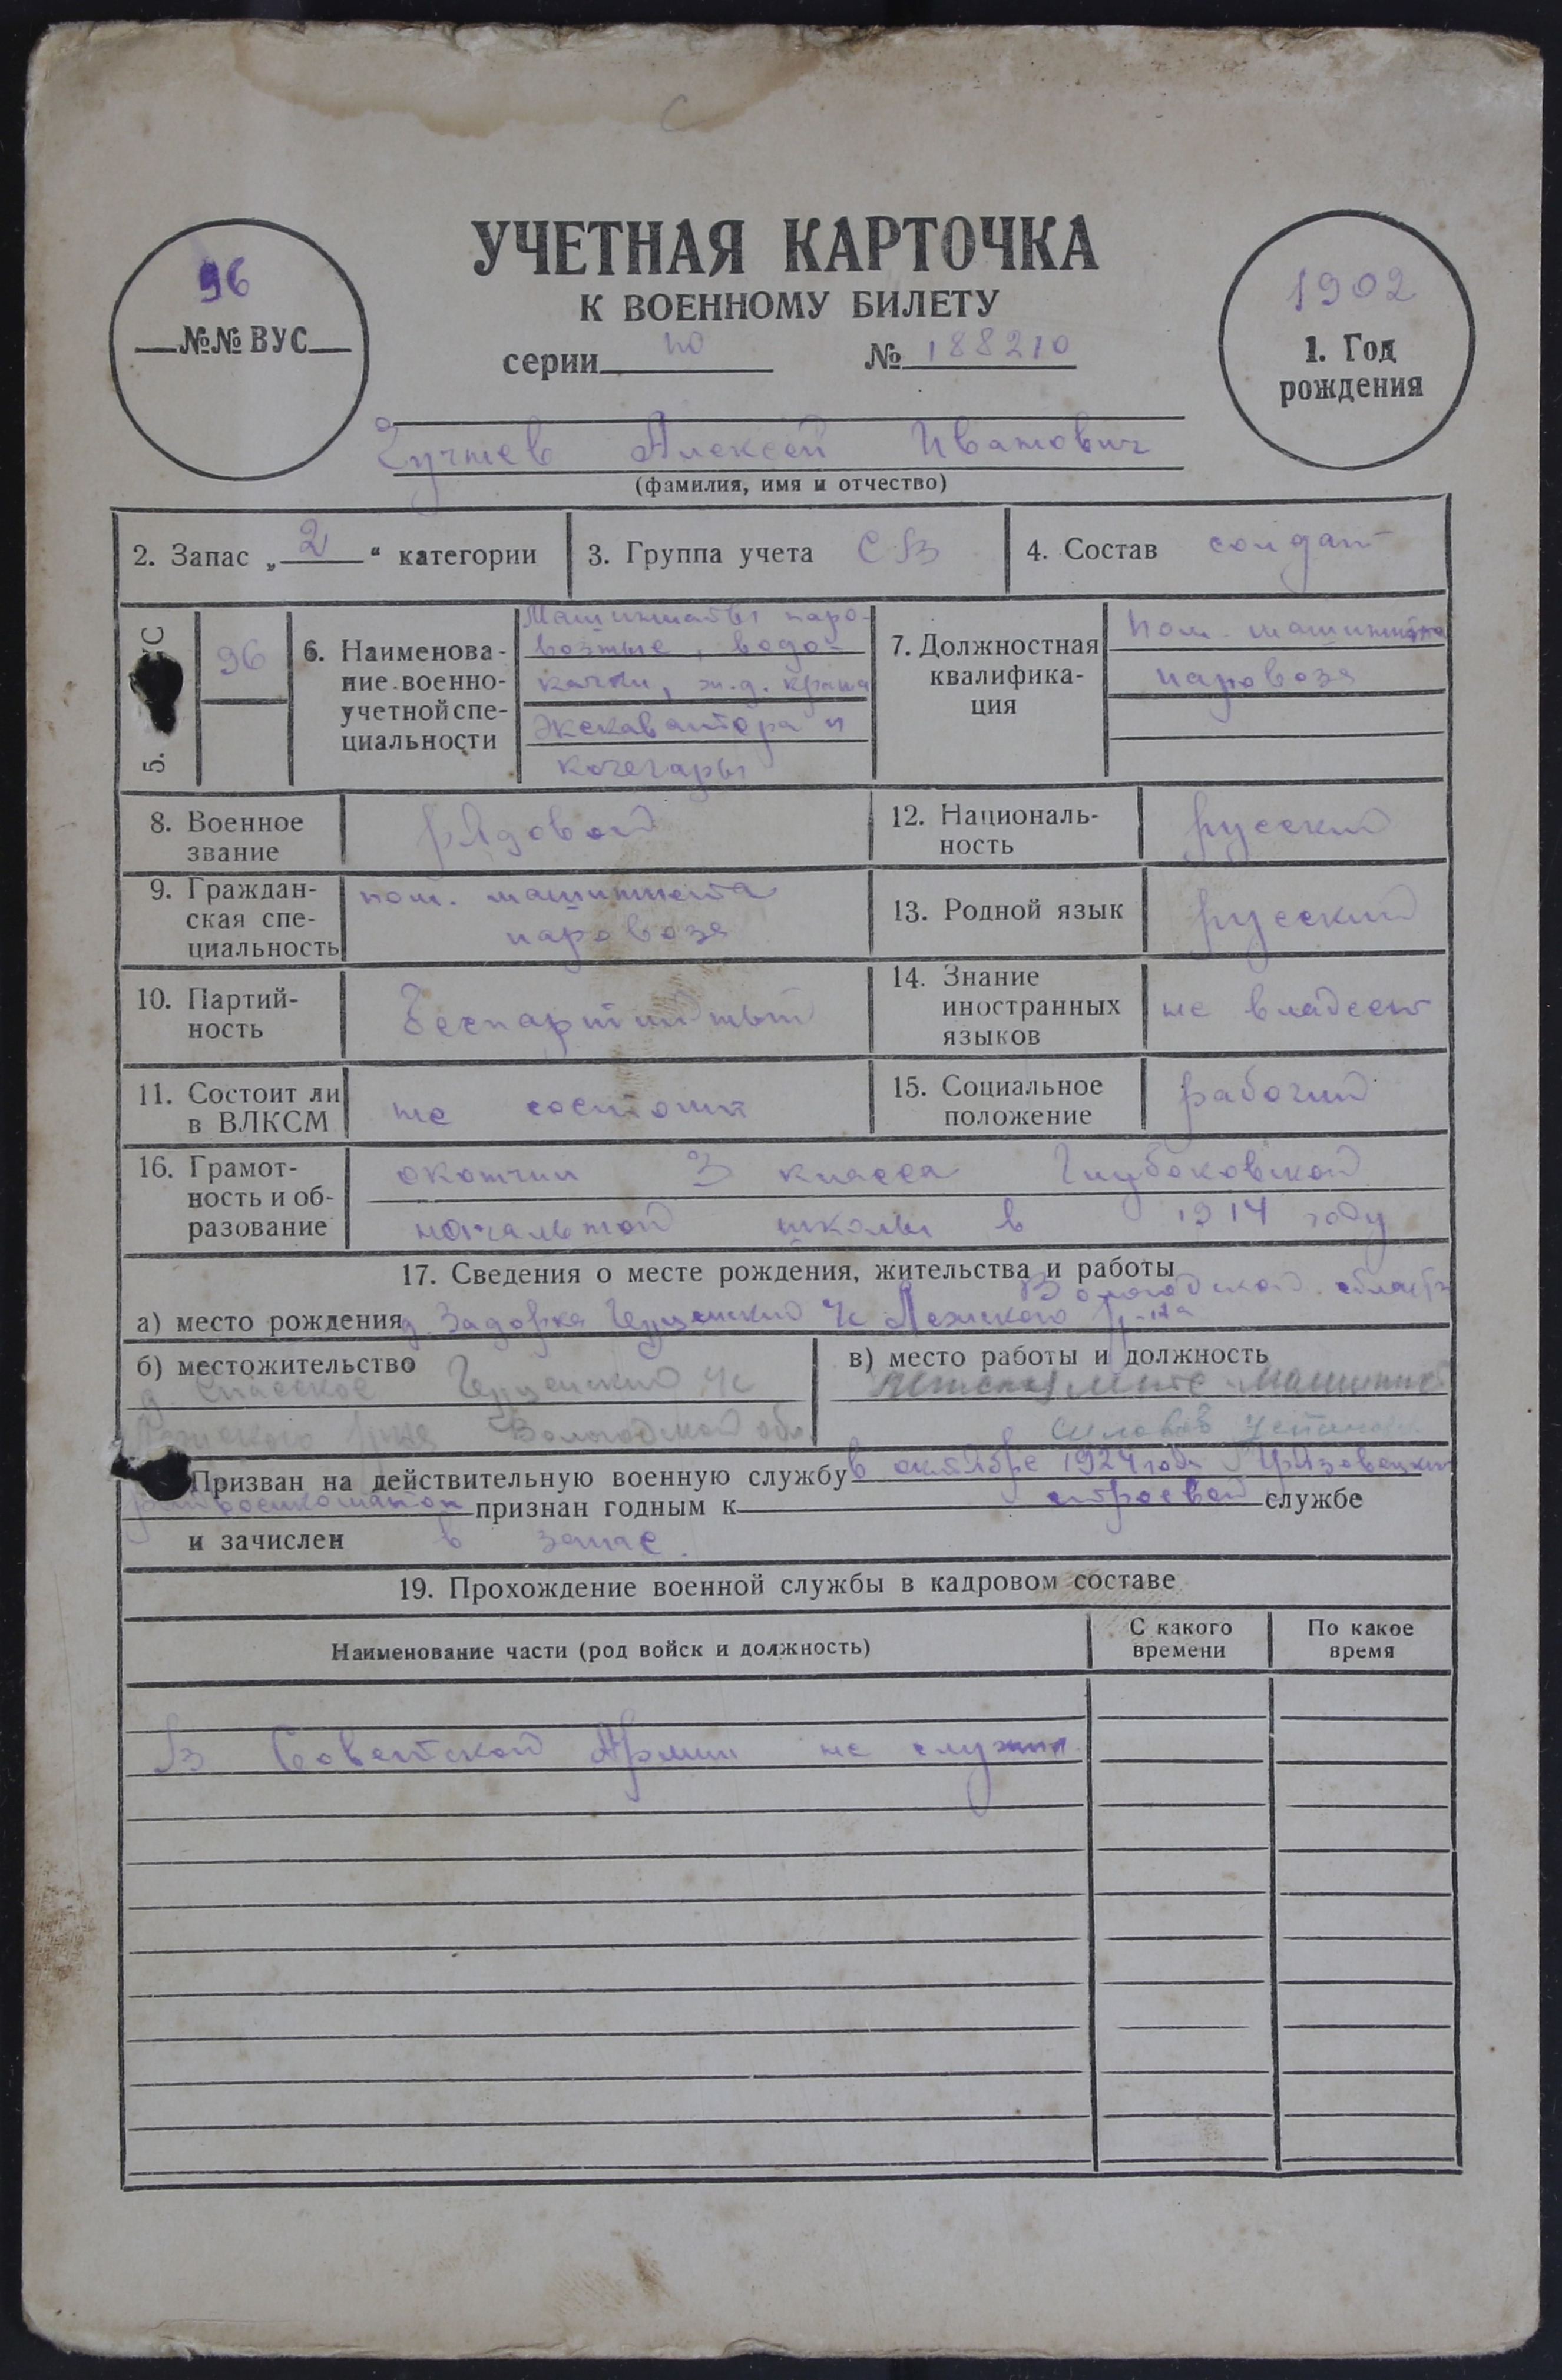 УЧЕТНАЯ КАРТОЧКА
К ВОЕННОМУ БИЛЕТУ
96
№№ ВУС
серии по № 188210
1902
1. Год
рождения
Алексей Иванович
(фамилия, имя и отчество)
2. Запас „ 2 “ категории
3. Группа учета СВ
4. Состав солдат
5.
96
6. Наименова-
ние военно-
учетной спе-
циальности
Машинисты паро-
возные, водо-
качки, ж.д. крана
экскаватора и
кочегары
7. Должностная
квалифика-
ция
пом. машиниста
паровоза
8. Военное
звание
рядовой
12. Националь-
ность
русский
9. Граждан-
ская спе-
циальность
пом. машиниста
паровоза
13. Родной язык
русский
10. Партий-
ность
беспартийный
14. Знание
иностранных
языков
не владеет
11. Состоит ли
в ВЛКСМ
не состоит
15. Социальное
положение
рабочий
16. Грамот-
ность и об-
разование
окончил 3 класса Глубоковской
начальной школы в 1914 году
17. Сведения о месте рождения, жительства и работы
Вологодской области
а) место рождения д. Задорка с/с Лежского р-на
б) местожительство
д. Спасское с/с
Лежского р-на Вологодской обл.
в) место работы и должность
Призван на действительную военную службу в октябре 1924 года Грязовецким
райвоенкоматом признан годным к строевой службе
и зачислен в запас.
19. Прохождение военной службы в кадровом составе
Наименование части (род войск и должность)
С какого
времени
По какое
время
В Советской Армии не служил